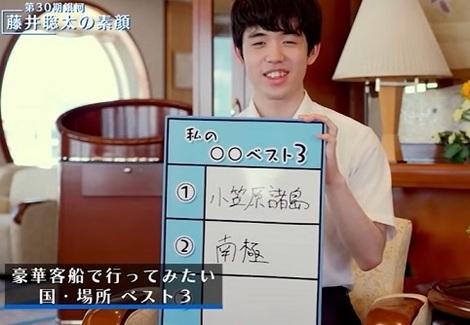 第30期銀河
藤井聡太の素顔
私の
○○ベスト3
① 小笠原諸島
② 南極
豪華客船で行ってみたい
国・場所 ベスト3